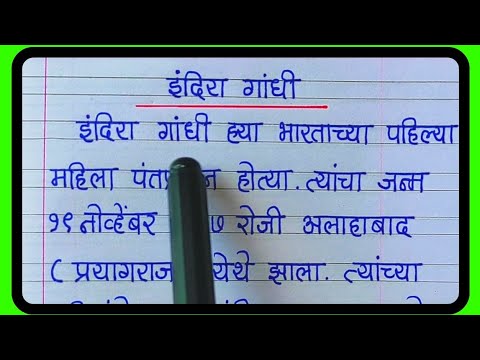 इंदिरा गांधी
इंदिरा गांधी ह्या भारताच्या पहिल्या
महिला होत्या. त्यांचा जन्म
१९ नोव्हेंबर ७ रोजी अलाहाबाद
( प्रयागराज येथे झाला. त्यांच्या